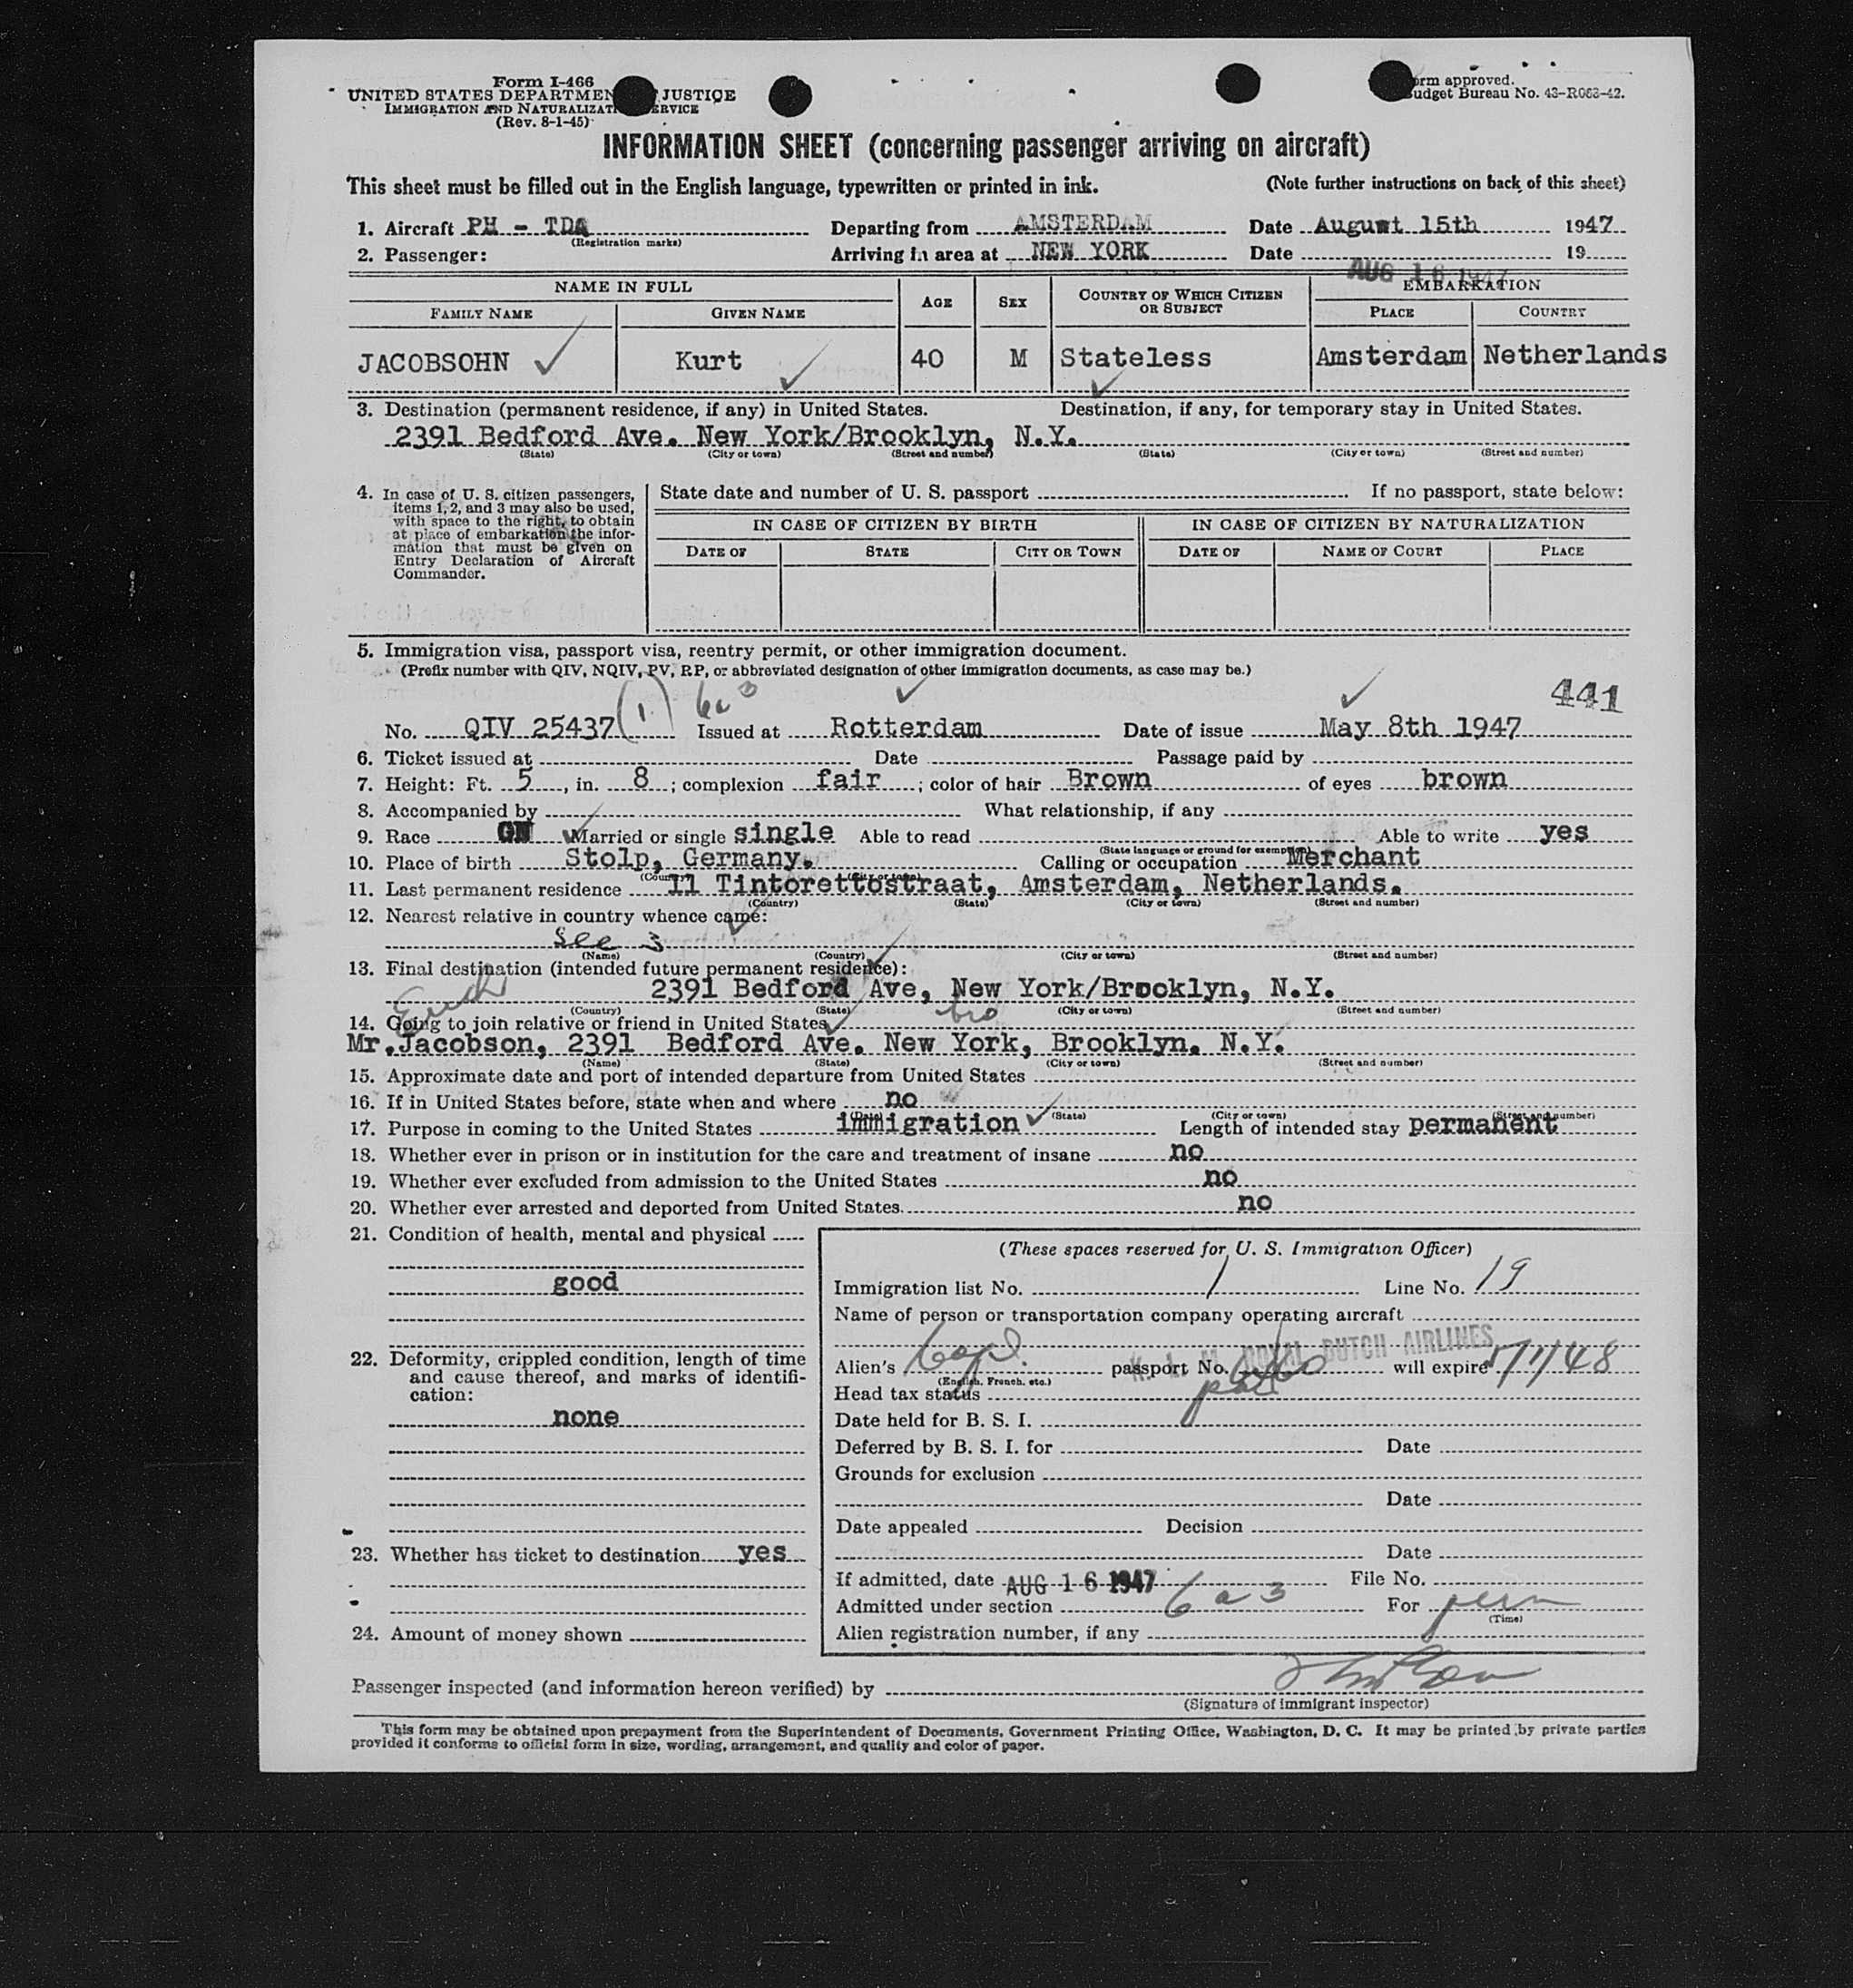 Form I-466
UNITED STATES DEPARTMENT JUSTICE
IMMIGRATION AND NATURALIZATI SERVICE
(Rev. 8-1-45)
Form approved.
Budget Bureau No. 43-R063-42.
INFORMATION SHEET (concerning passenger arriving on aircraft)
This sheet must be filled out in the English language, typewritten or printed in ink. (Note further instructions on back of this sheet)
1. Aircraft PH - TDA Departing from AMSTERDAM Date August 15th 1947
(Registration marks)
2. Passenger: Arriving in area at NEW YORK Date 19
AUG 16 1947
NAME IN FULL AGE SEX COUNTRY OF WHICH CITIZEN OR SUBJECT EMBARKATION
FAMILY NAME GIVEN NAME PLACE COUNTRY
JACOBSOHN Kurt 40 M Stateless Amsterdam Netherlands
3. Destination (permanent residence, if any) in United States. Destination, if any, for temporary stay in United States.
2391 Bedford Ave. New York/Brooklyn, N.Y.
(State) (City or town) (Street and number) (State) (City or town) (Street and number)
4. In case of U. S. citizen passengers,
items 1, 2, and 3 may also be used,
with space to the right, to obtain
at place of embarkation the infor-
mation that must be given on
Entry Declaration of Aircraft
Commander.
State date and number of U. S. passport If no passport, state below:
IN CASE OF CITIZEN BY BIRTH IN CASE OF CITIZEN BY NATURALIZATION
DATE OF STATE CITY OR TOWN DATE OF NAME OF COURT PLACE
5. Immigration visa, passport visa, reentry permit, or other immigration document.
(Prefix number with QIV, NQIV, PV, RP, or abbreviated designation of other immigration documents, as case may be.)
(1) 6a3 441
No. QIV 25437 Issued at Rotterdam Date of issue May 8th 1947
6. Ticket issued at Date Passage paid by
7. Height: Ft. 5, in. 8; complexion fair; color of hair Brown of eyes brown
8. Accompanied by What relationship, if any
9. Race GN Married or single single Able to read Able to write yes
(State language or ground for exemption)
10. Place of birth Stolp, Germany. Calling or occupation Merchant
(Country) (City or town)
11. Last permanent residence 11 Tintorettostraat, Amsterdam, Netherlands.
(Country) (State) (City or town) (Street and number)
12. Nearest relative in country whence came:
See 3
(Name) (Country) (City or town) (Street and number)
13. Final destination (intended future permanent residence):
2391 Bedford Ave, New York/Brooklyn, N.Y.
(Country) (State) (City or town) (Street and number)
14. Going to join relative or friend in United States bro
Mr.Jacobson, 2391 Bedford Ave. New York, Brooklyn. N.Y.
(Name) (State) (City or town) (Street and number)
15. Approximate date and port of intended departure from United States
16. If in United States before, state when and where no
(Date) (State) (City or town) (Street and number)
17. Purpose in coming to the United States immigration Length of intended stay permanent
18. Whether ever in prison or in institution for the care and treatment of insane no
19. Whether ever excluded from admission to the United States no
20. Whether ever arrested and deported from United States. no
21. Condition of health, mental and physical
good
22. Deformity, crippled condition, length of time
and cause thereof, and marks of identifi-
cation:
none
23. Whether has ticket to destination yes
24. Amount of money shown
(These spaces reserved for U. S. Immigration Officer)
Immigration list No. 1 Line No. 19
Name of person or transportation company operating aircraft
K. L. M. ROYAL DUTCH AIRLINES
Alien's passport No. will expire
(English, French, etc.)
Head tax status
Date held for B. S. I.
Deferred by B. S. I. for Date
Grounds for exclusion
Date
Date appealed Decision
Date
If admitted, date AUG 16 1947 File No.
Admitted under section 6a3 For perm
(Time)
Alien registration number, if any
Passenger inspected (and information hereon verified) by
(Signature of immigrant inspector)
This form may be obtained upon prepayment from the Superintendent of Documents, Government Printing Office, Washington, D. C. It may be printed by private parties
provided it conforms to official form in size, wording, arrangement, and quality and color of paper.